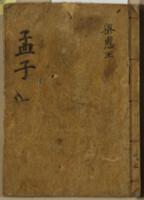 梁惠王
孟子